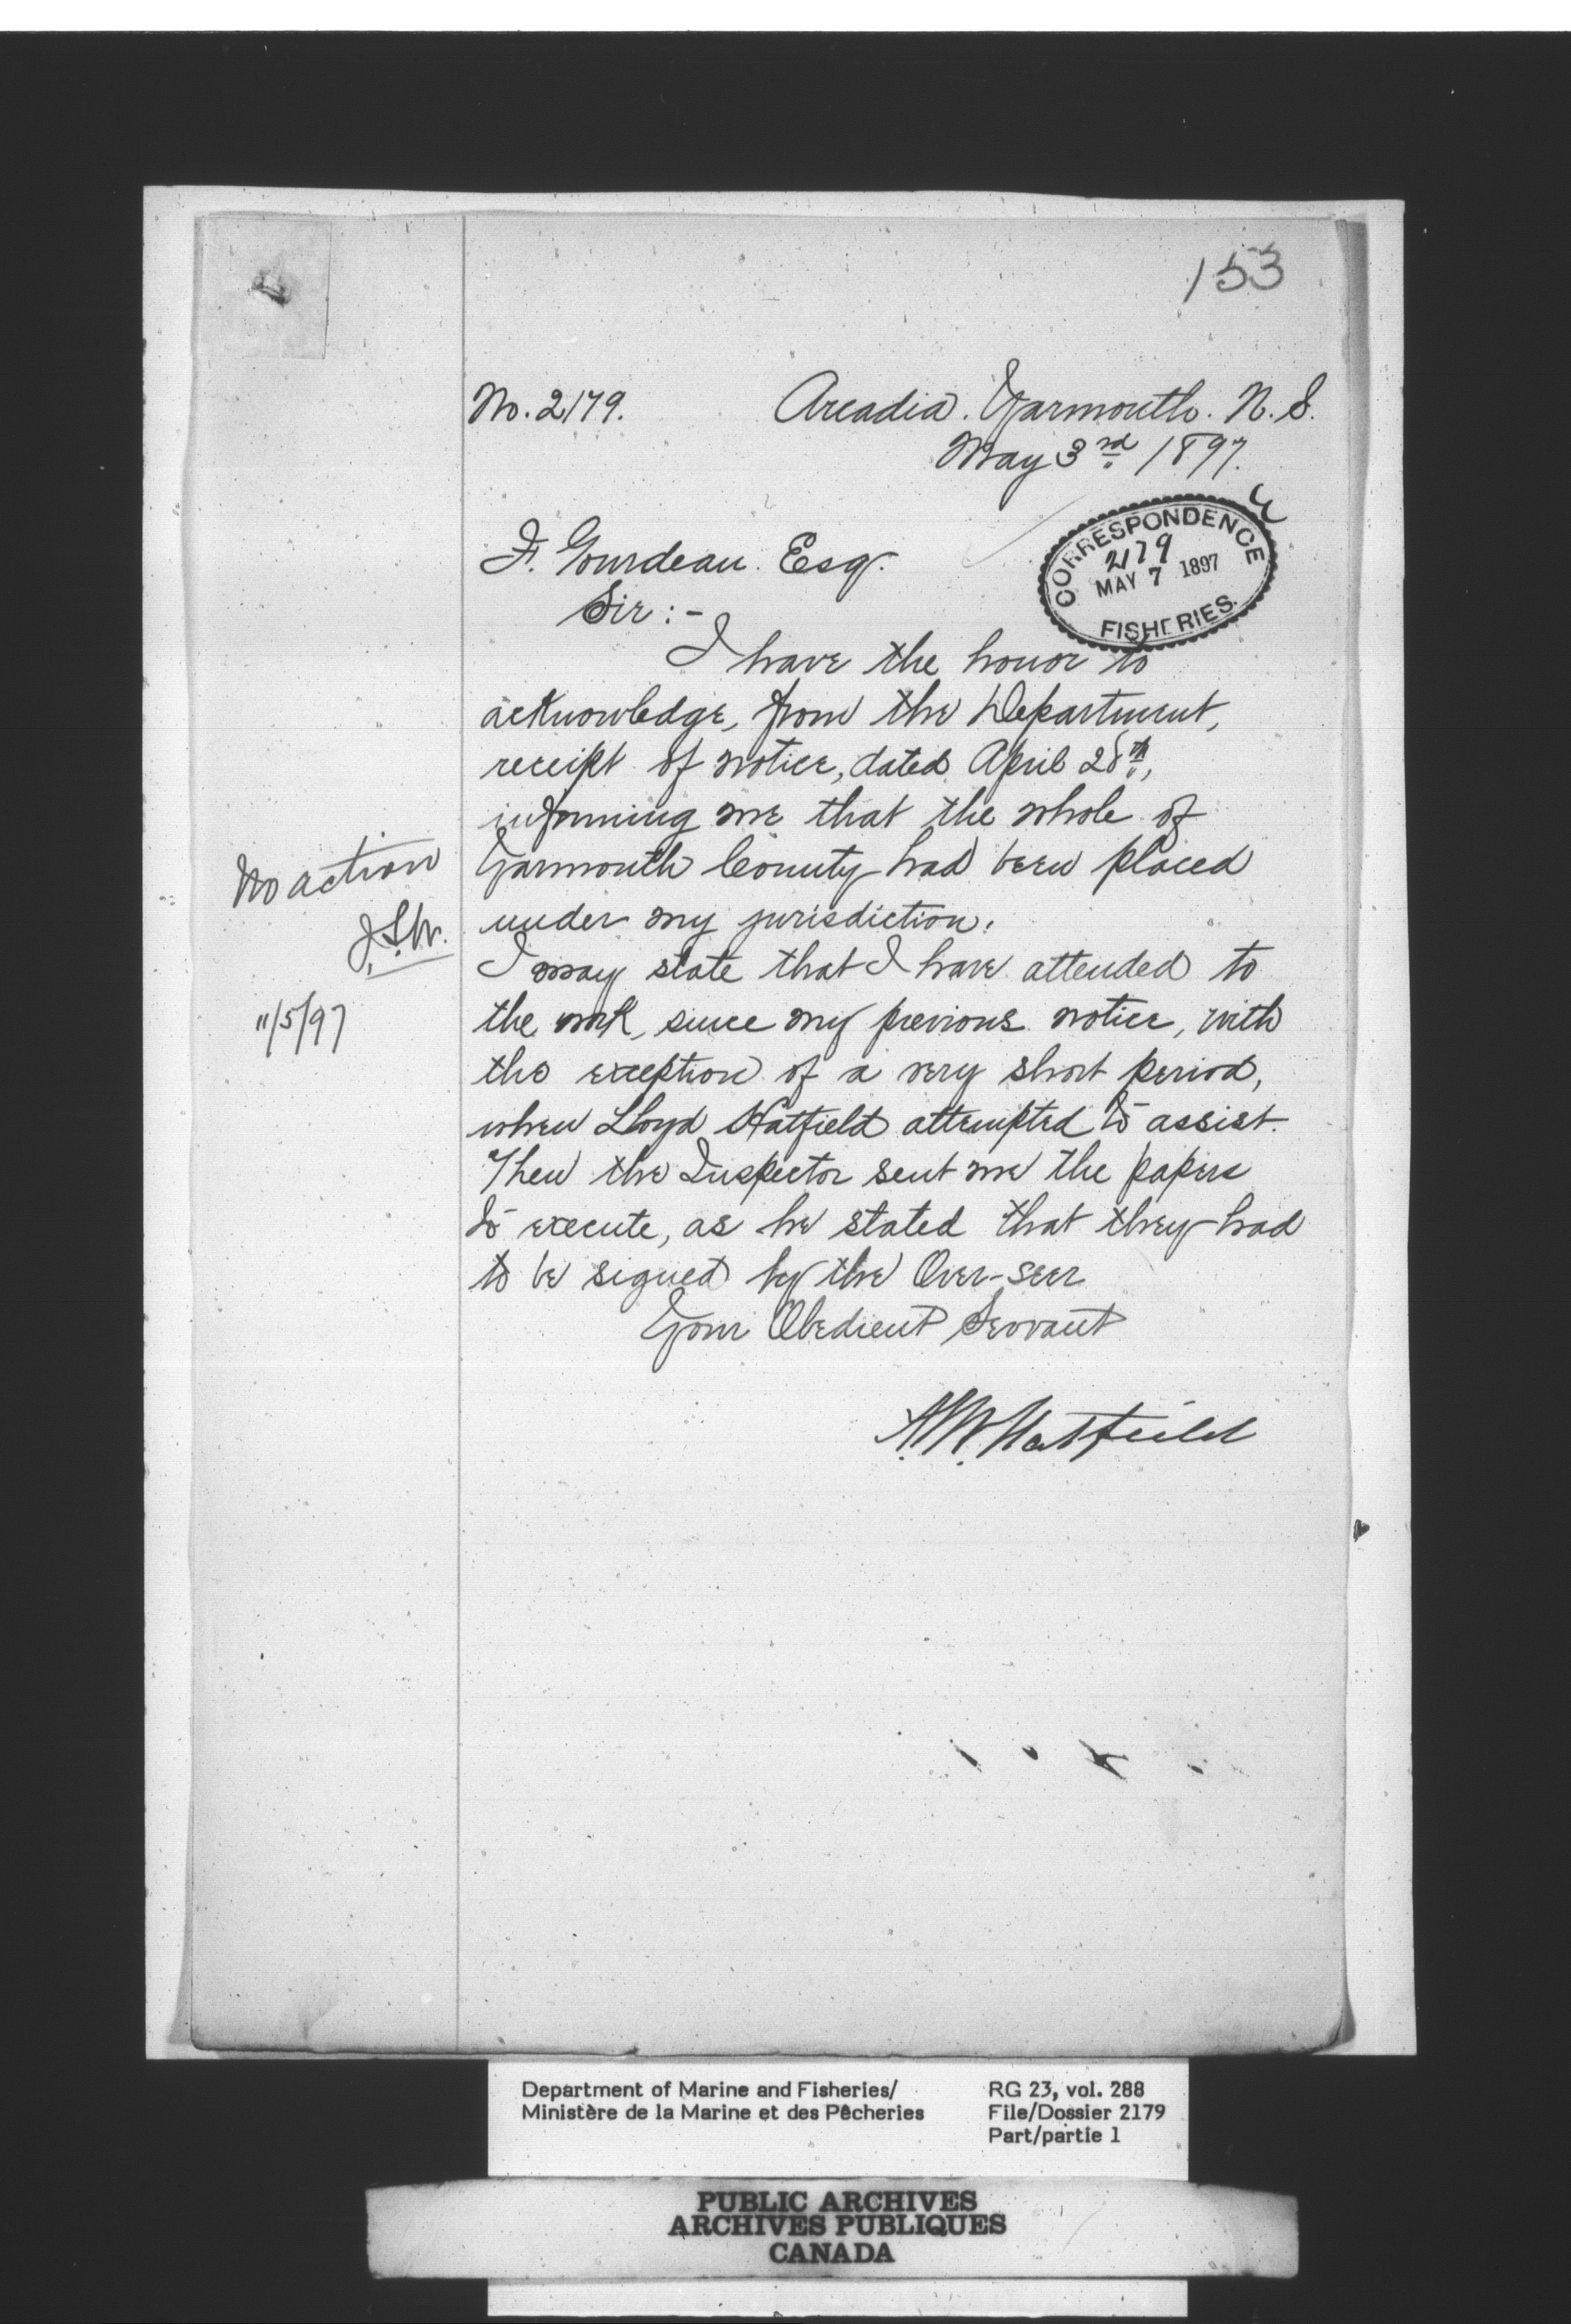 153
No. 2179.
Arcadia. Yarmouth. N. S.
May 3rd 1897.
CORRESPONDENCE
2179
MAY 7 1897
FISHERIES.
F. Gourdeau. Esq.
Sir:-
I have the honor to
acknowledge, from the Department,
receipt of notice, dated April 28th,
informing me that the whole of
Yarmouth County had been placed
under my jurisdiction.
No action
J.S.W.
11/5/97
I may state that I have attended to
the work, since my previous notice, with
the exception of a very short period,
when Lloyd Hatfield attempted to assist.
Then the Inspector sent me the papers
to execute, as he stated that they had
to be signed by the Over-seer
Your Obedient Servant
Hatfield
Department of Marine and Fisheries/
Ministère de la Marine et des Pêcheries
RG 23, vol. 288
File/Dossier 2179
Part/partie 1
PUBLIC ARCHIVES
ARCHIVES PUBLIQUES
CANADA